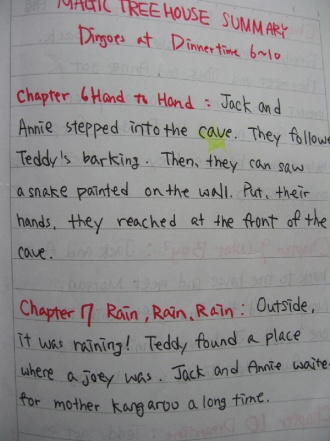 MAGIC TREEHOUSE SUMMARY
Dingoes at Dinnertime 6~10
Chapter 6 Hand to Hand : Jack and
Annie stepped into the cave. They followe
Teddy's barking. Then, they can saw
a snake painted on the wall. Put, their
hands, they reached at the front of the
cave.
Chapter 7 Rain, Rain, Rain : Outside,
it was raining! Teddy found a place
where a joey was. Jack and Annie waite
for mother kangaroo a long time.